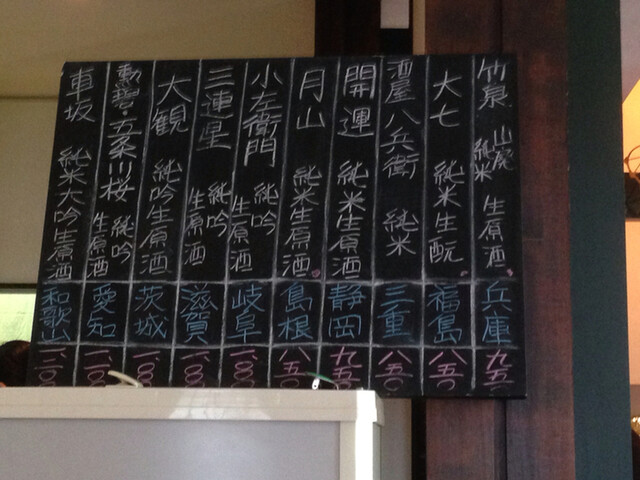 竹泉 山廃純米 生原酒 兵庫 九五〇
大七 純米生酛 福島 八五〇
酒屋八兵衛 純米 三重 八五〇
開運 純米生原酒 静岡 九五〇
月山 純米生原酒 島根 八五〇
小左衛門 純吟生原酒 岐阜 一、〇〇〇
三連星 純吟生原酒 滋賀 一、〇〇〇
大観 純吟生原酒 茨城 一、〇〇〇
勲碧・五条川桜 純吟生原酒 愛知
車坂 純米大吟生原酒 和歌山